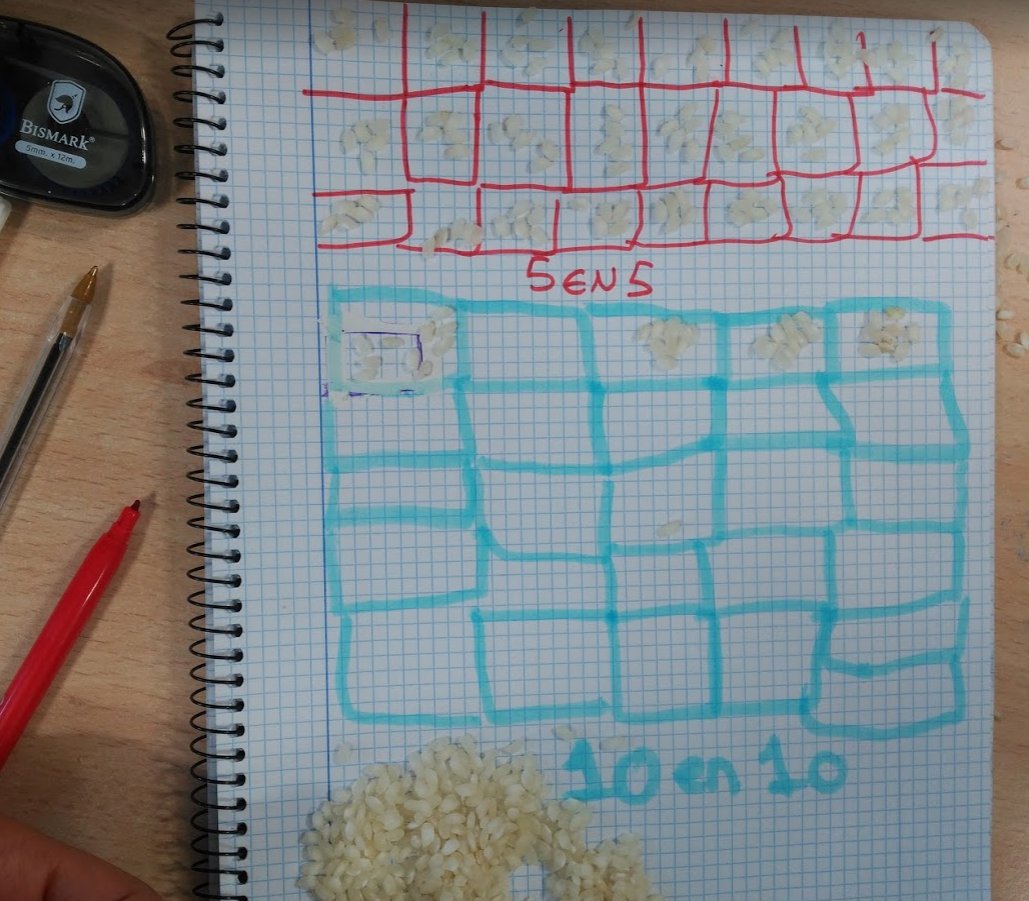 BISMARK®
5mm. x 12m.
5 EN 5
10 en 10